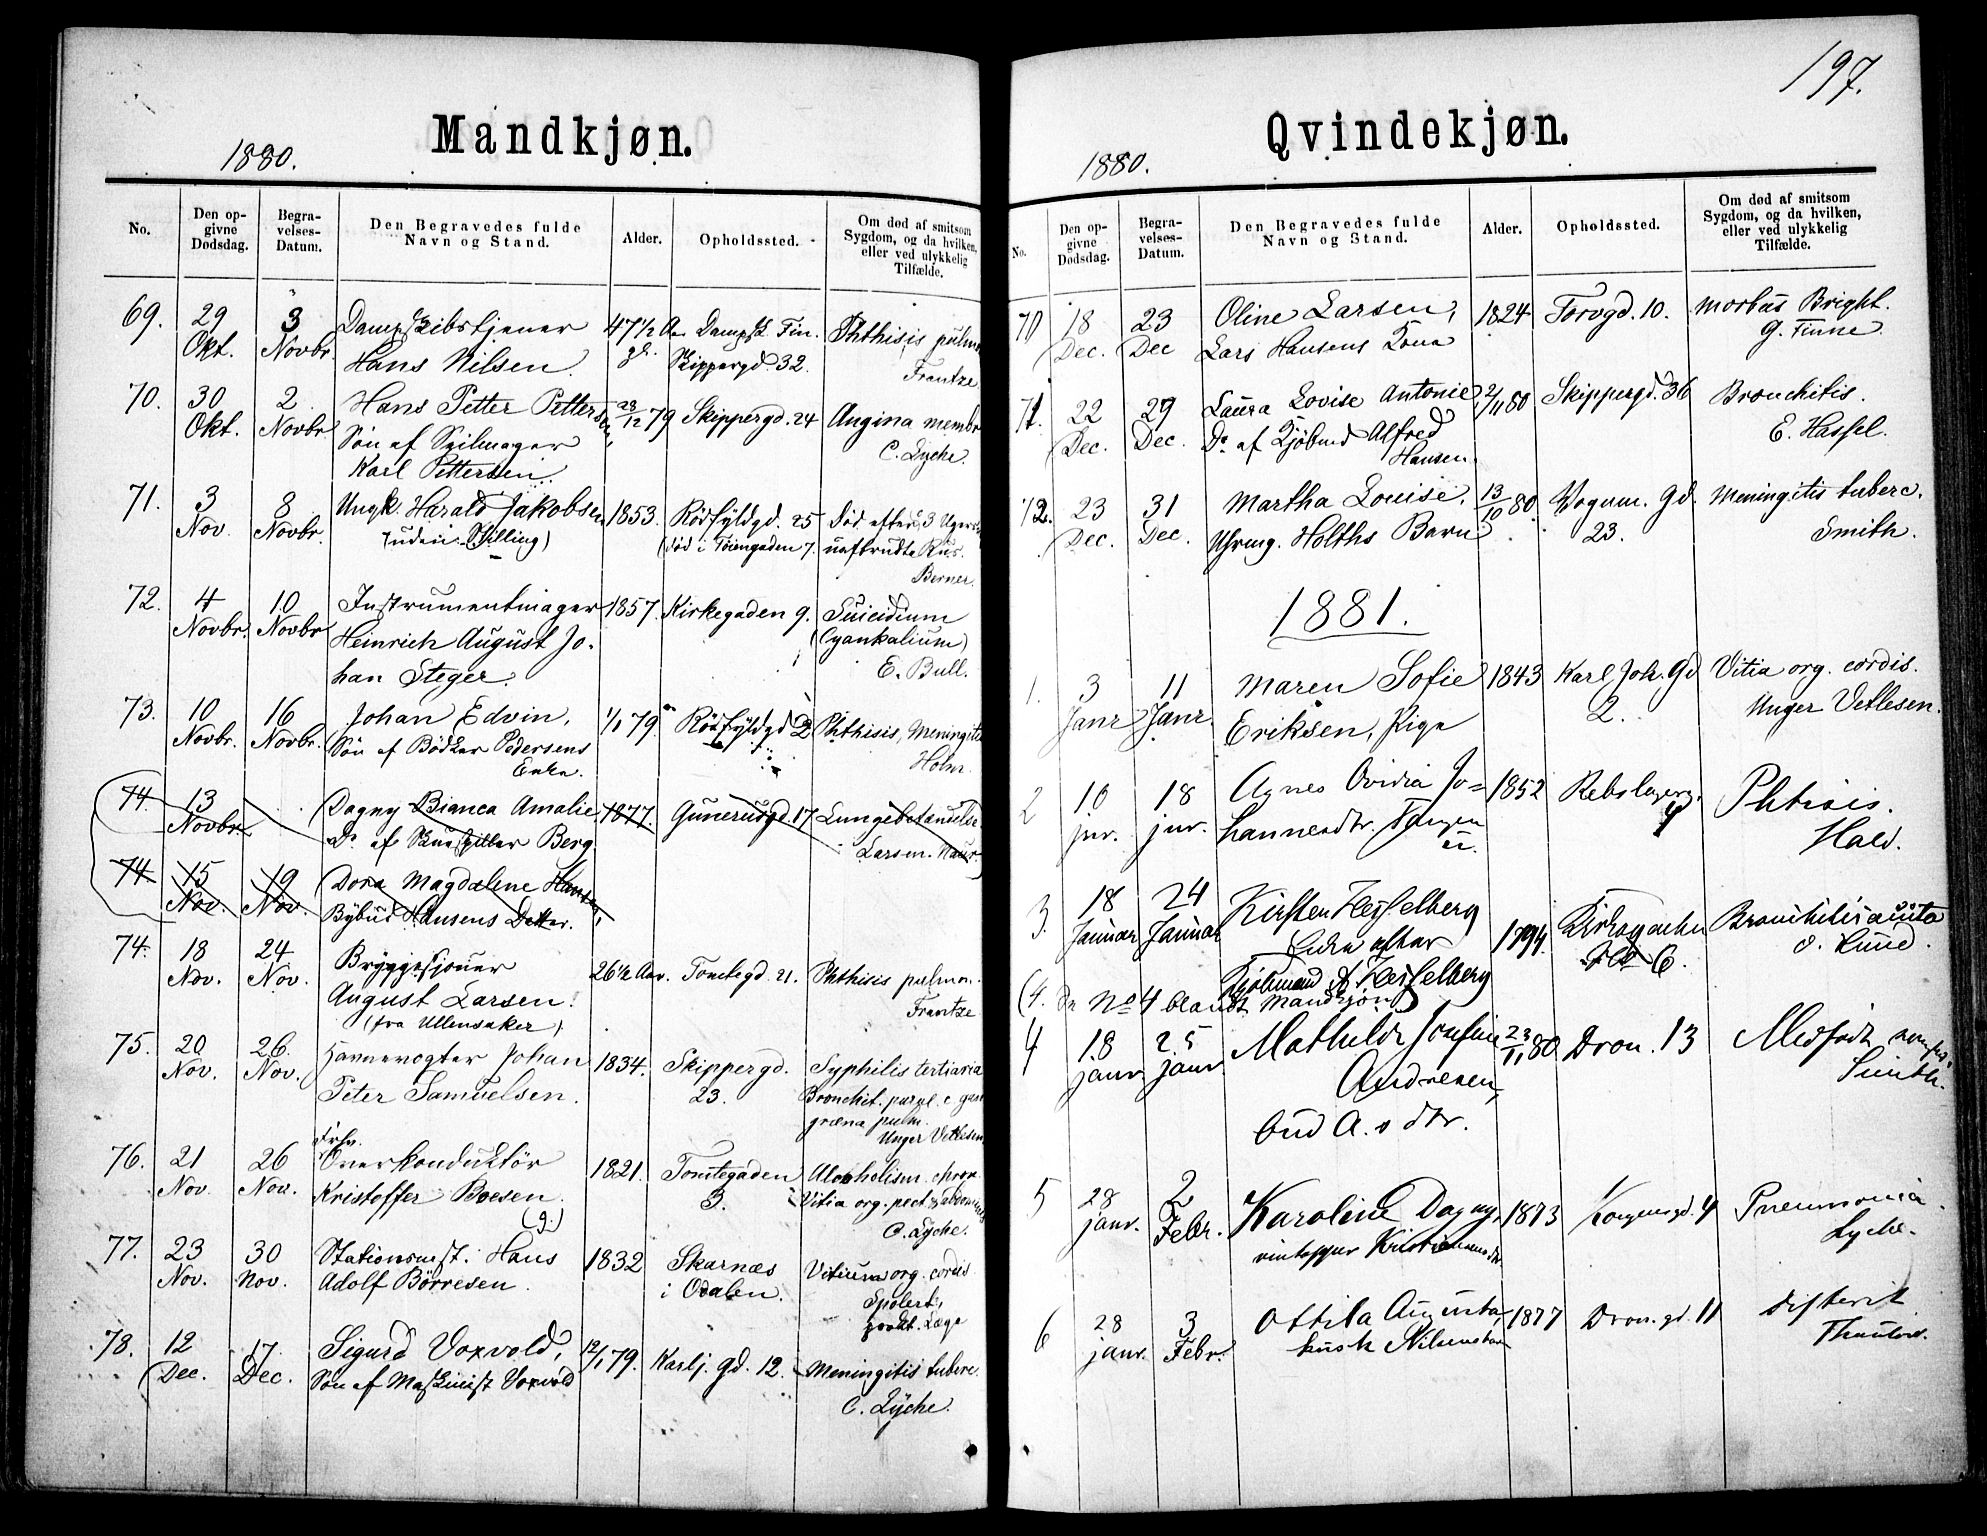 197.
Mandkjøn.
1880.
No.
Den opgivne Dødsdag.
Begravelses-Datum.
Den Begravedes fulde Navn og Stand.
Alder.
Opholdssted.
Om død af smitsom Sygdom, og da hvilken, eller ved ulykkelig Tilfælde.
69. 29 3 Dampskibstjener 47½ Aar Dampsk. Fin. Phthisis pulm.
Okt. Novbr. Hans Nilsen. gl. Skippergd. 32. Frantze
70. 30 2 Hans Petter Pettersen, 28/12 79 Skippergd. 24 Angina membr.
Okt. Novbr Søn af Seilmager C. Lyche.
Karl Pettersen.
71. 3 8 Ungk. Harald Jakobsen 1853. Rörfyldgd. 25 Död efter 3 Ugers
Nov. Novbr. (uden Stilling) (död i Töiengaden 7. uafbrudte Rus.
Berner.
72. 4 10 Instrumentmager 1857. Kirkegaden 9. Suicidium
Novbr. Novbr Heinrich August Jo- (Cyankalium)
han Steger. E. Bull.
73. 10 16 Johan Edvin, 1/1 79. Rörfyldgd 2 Phthisis, Meningitis
Novbr. Novbr. Søn af Bödker Pedersens Holm.
Enke.
74. 13 Dagny Bianca Amalie 1877. Gunerusgd. 17 Lungebetændelse
Novbr. Dr. af Skuespiller Berg. Larsen.
74. 15 19 Dora Magdalene Hansen,
Nov. Nov. Bybud Hansens Datter.
74. 18 24 Bryggesjouer 26½ Aar. Tomtegd. 21. Phthisis pulmon.
Nov. Nov. August Larsen. Frantze
(fra Ullensaker)
75. 20 26. Havnevogter Johan 1834. Skippergd. Syphilis tertiaria
Nov. Nov. Peter Samuelsen. 23. Bronchit. purul. c gan
græna pulm.
Unger Vetlesen
Frhv.
76. 21 26 Overkonduktör 1821. Tomtegaden Alcoholism. chron
Nov. Nov. Kristoffer Boesen. 3. Vitia org. pect. & abdominis
(g.) C. Lyche.
77. 23 30 Stationsmst. Hans 1832 Skarnæs Vitium org. cordis
Nov. Nov. Adolf Börresen i Odalen. Læge
78. 12 17. Sigurd Voxvold, 12/1 79. Karlj. Gd. 12. Meningitis tuberc.
Dec. Dec. Søn af Maskinist Voxvold C. Lyche.
Qvindekjøn.
1880.
No.
Den opgivne Dødsdag.
Begravelses-Datum.
Den Begravedes fulde Navn og Stand.
Alder.
Opholdssted.
Om død af smitsom Sygdom, og da hvilken, eller ved ulykkelig Tilfælde.
70 18 23 Oline Larsen, 1824 Torvgd. 10. Morbus Bright.
Dec. Dec Lars Hansens Kona G. Finne.
71. 22 29 Laura Lovise Antonie 2/11 80 Skippergd. 36 Bronchitis.
Dec. Dec. Dr. af Kjöbmd Alfred E. Hassel.
Hansen.
72. 23 31 Martha Louise, 13/10 80. Vognm. Gd. Meningitis tuberc.
Dec. Dec. Uhrmg. Holths Barn 23. Smith.
1881.
1. 3 11 Maren Sofie 1843 Karl Joh. Gd Vitia org. cordis.
Janr Janr. Eriksen, Pige 2. Unger Vetlesen.
2 10 18 Agnes Ovidia Jo- 1852 Rebslagerg. Phtisis.
jnr. jnr. hannesdtr. Tangen 4 Hald.
u.
3. 18 24 Kirsten Hesselberg 1794. Kirkegaden Bronchitis acuta
Januar Januar Enke efter No 6. Lund.
Kjöbmand A Hesselberg
(4. Se No 4 blandt Mandkjön)
4 18 25 Mathilde Josefine 23/11 80 Dron. 13 Medfödt
janr janr Andresen, Smith.
bud A.s dtr.
5 28 2 Karoline Dagny, 1873 Kongensgd. 4 Pneumonia.
janr. Febr. vintapper Kristiansens dtr Lyche.
6 28 3 Ottila Augusta, 1877 Dron. gd. 11 difterit
janr. Febr. kusk Nilsens barn Thaulow.